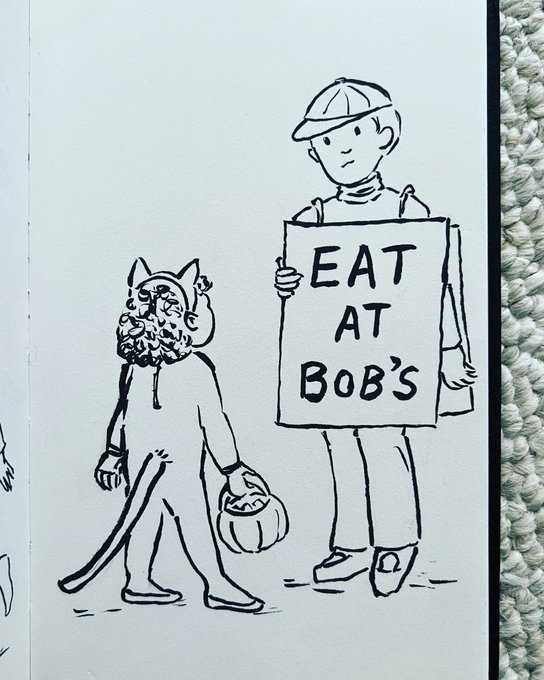 EAT
AT
BOB'S